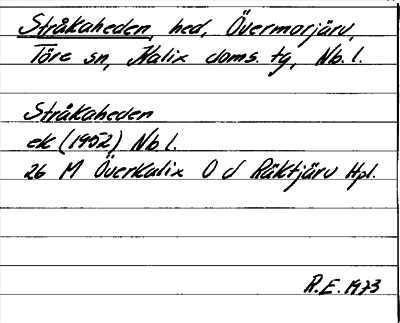 Stråkaheden, hed, Övermorjärv,
Töre sn, Kalix doms. tg, Nb. l.
Stråkaheden
ek (1952) Nb l.
26 M Överkalix O d Räktjärv Hpl.
R.E. 1973